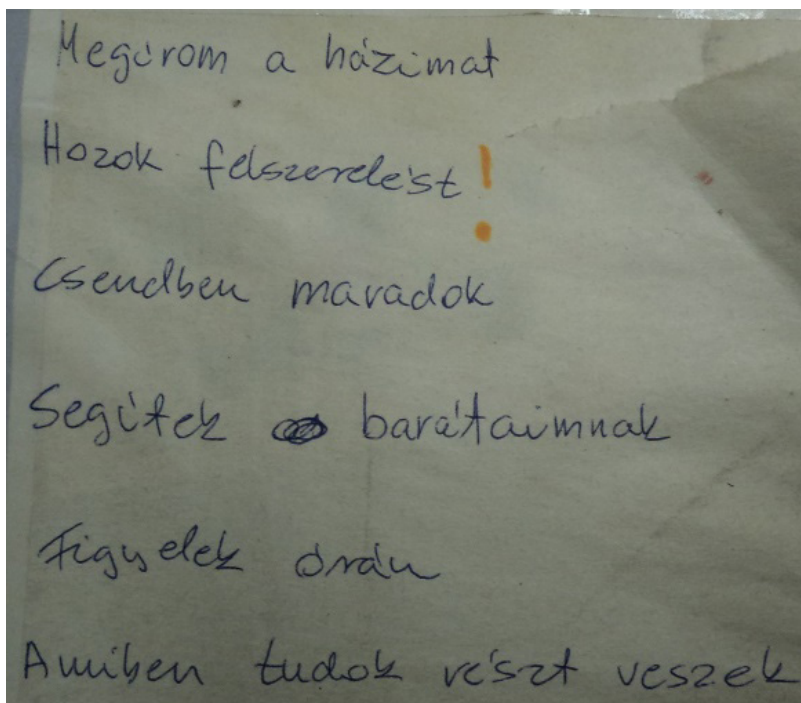 Megírom a házimat
Hozok felszerelést!
Csendben maradok
Segítek barátaimnak
Figyelek órán
Amiben tudok részt veszek